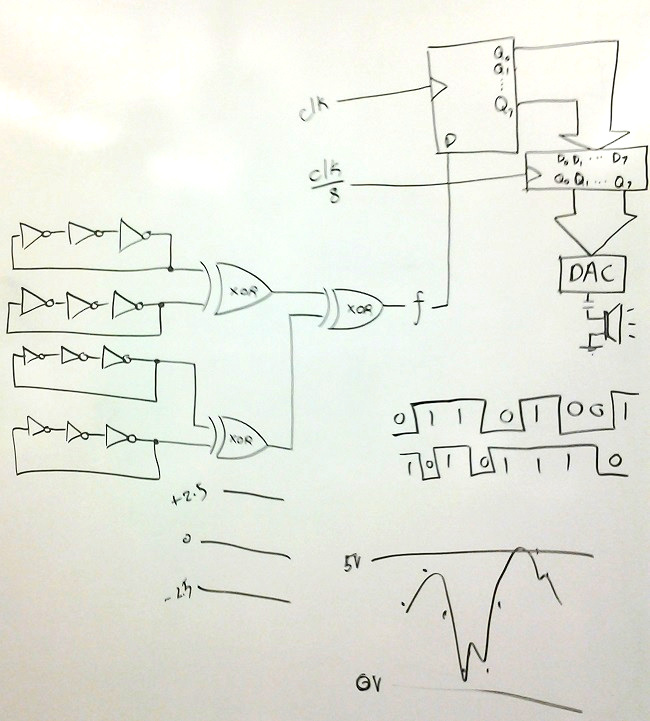 Q0
Q1
...
Q7
clk
D
D0 D1 ... D7
clk/8
Q0 Q1 ... Q7
DAC
XOR
XOR
f
XOR
0 1 1 0 1 0 0 1
1 0 1 0 1 1 1 0
+2.5
0
5V
0V